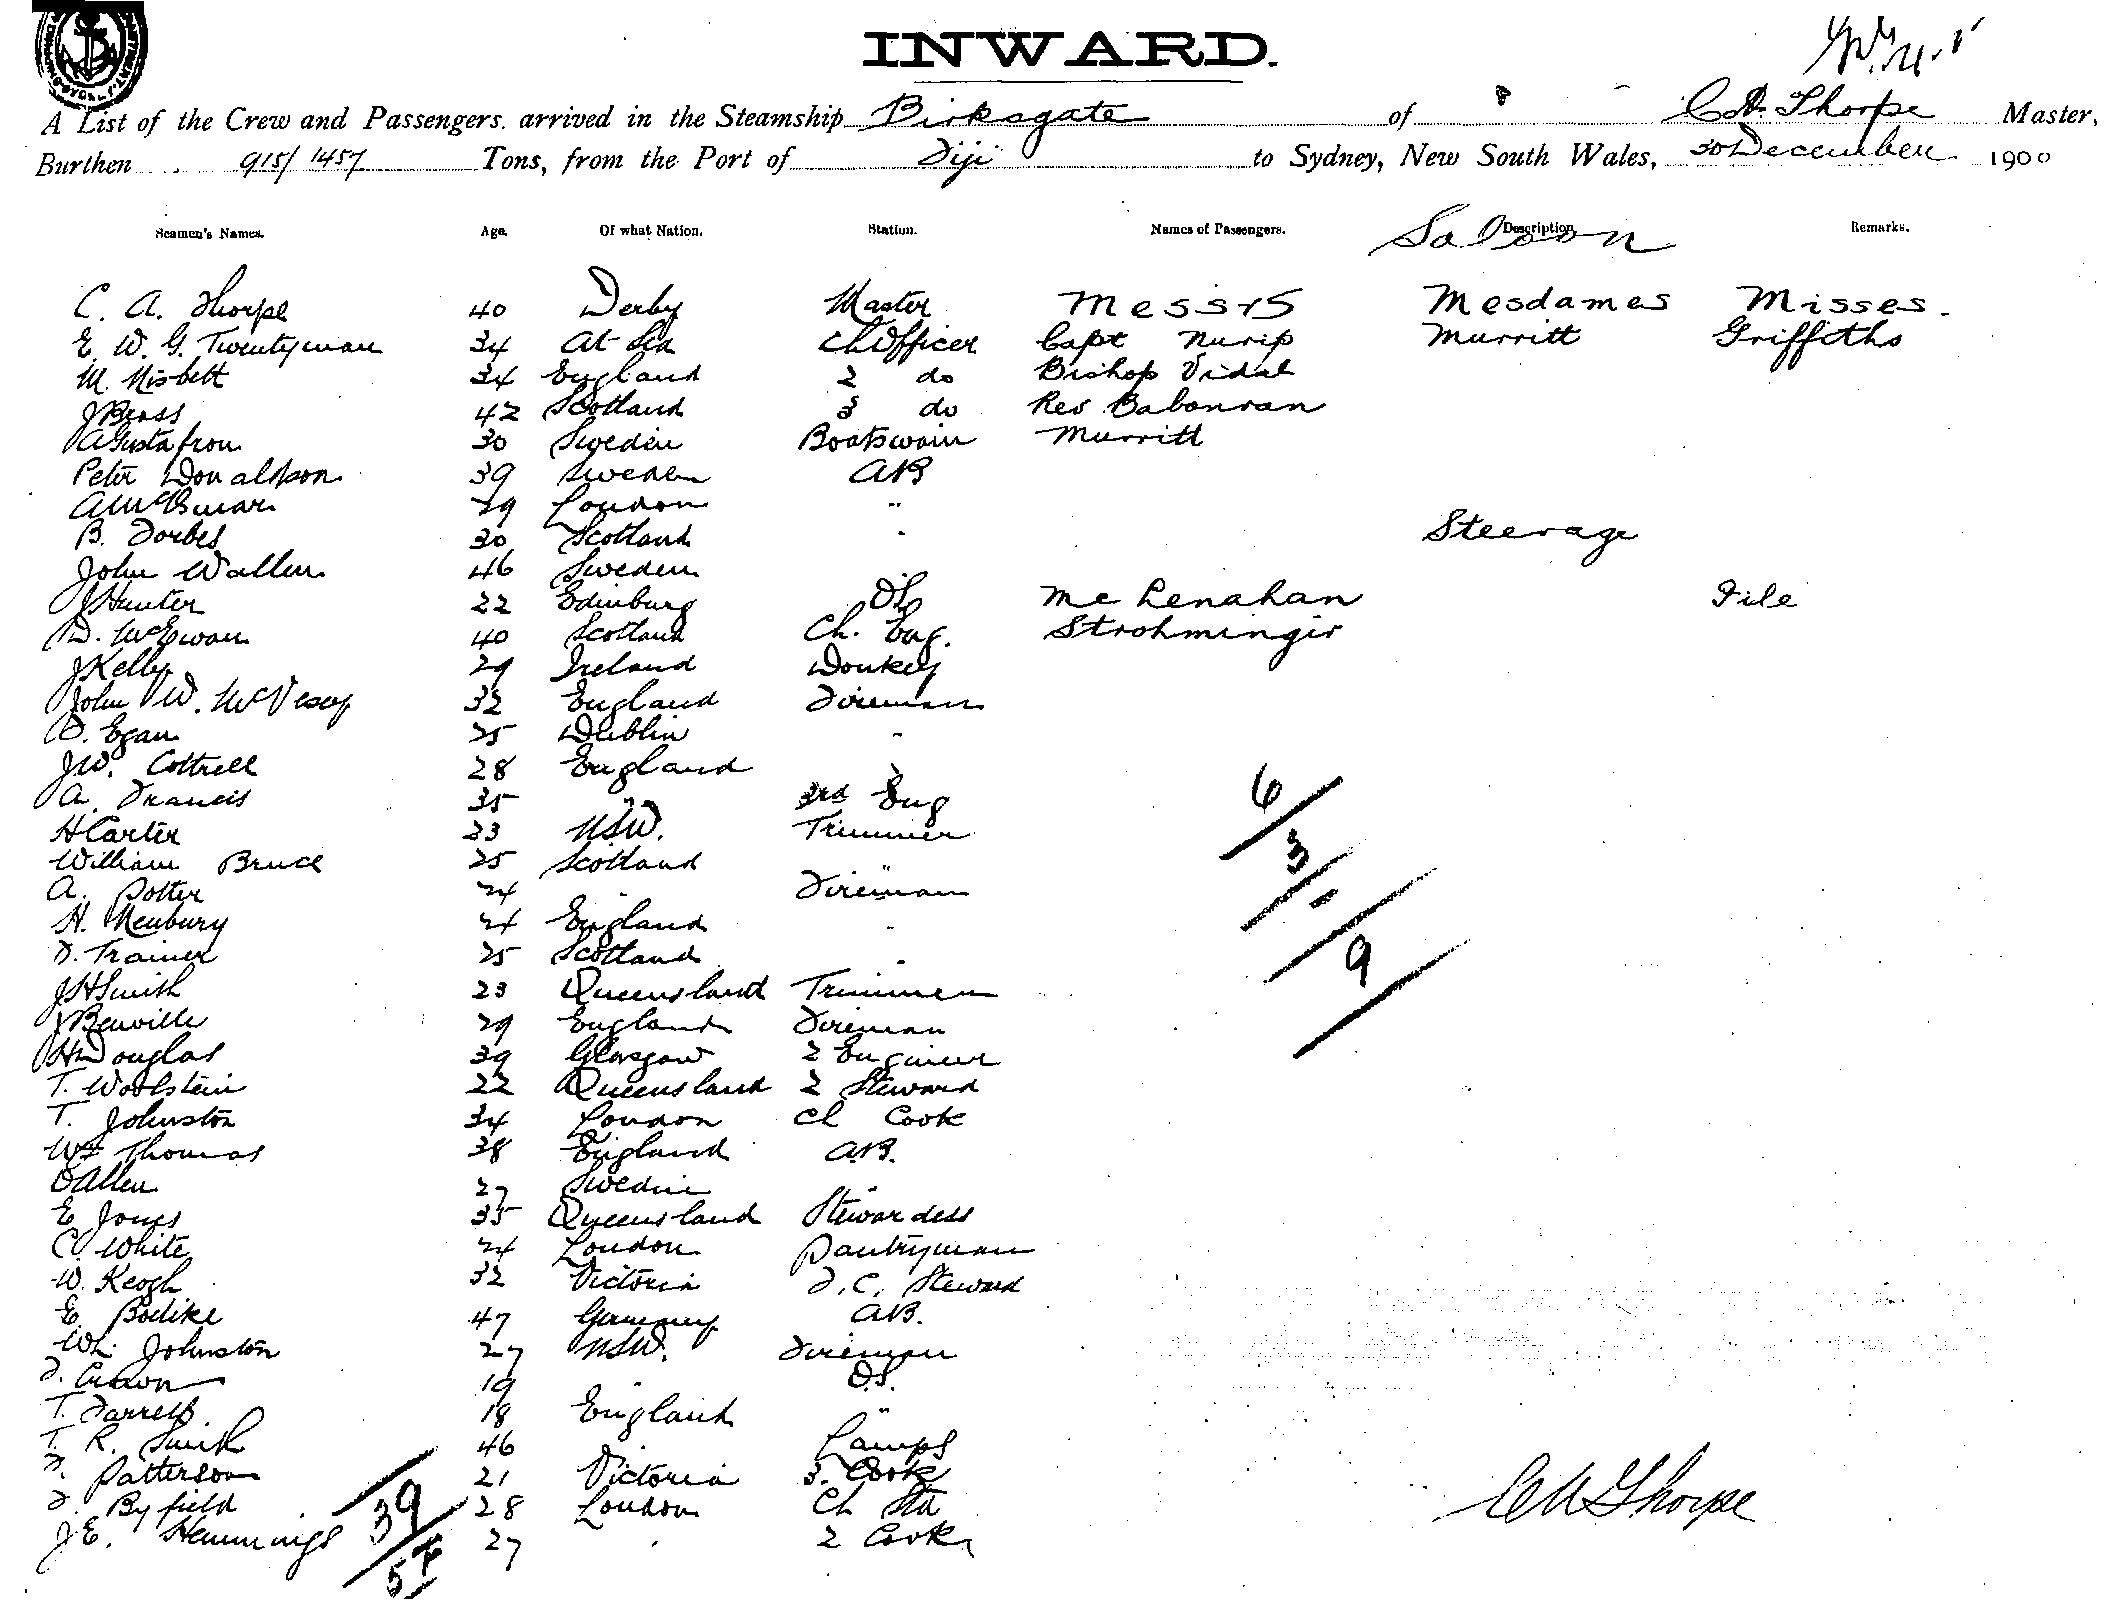 INWARD.
A List of the Crew and Passengers. arrived in the Steamship Birksgate of C A. Thorpe Master,
Burthen 915/1457 Tons, from the Port of Fiji to Sydney, New South Wales, 30 December 1900
Seamen's Names. Age. Of what Nation. Station. Names of Passengers. Description Remarks.
Saloon
C. A. Thorpe 40 Derby Master Messrs Mesdames Misses.
E. W. G. Twentyman 34 At Sea Ch Officer Capt Nurip Murritt Griffiths
M. Nisbett 34 England 2 do Bishop Vidal
J Bross 42 Scotland 3 do Rev Babonran
A Gustafron 30 Sweden Boatswain Murritt
Peter Donaldson 39 Sweden AB
29 London "
B. Forbes 30 Scotland "
Steerage
John Wallen 46 Sweden
J Hunter 22 Edinburg OS Mc Lenahan File
D. McEwan 40 Scotland Ch. Eng. Strohmingir
J Kelly 29 Ireland Donkey
John W. McVesey 32 England Fireman
D. Egan 25 Dublin "
J W. Cottrell 28 England
A. Francis 35 " 3rd Eng
H Carter 33 NSW. Trimmer
William Bruce 25 Scotland "
A. Potter 24 Fireman
H. Newbury 24 England "
F. Trainer 25 Scotland "
J H Smith 23 Queensland Trimmer
J Benville 29 England Fireman
H Douglas 39 Glasgow 2 Engineer
T. Woolstein 22 Queensland 2 Steward
T. Johnston 34 London Ch Cook
Wm Thomas 38 England A.B.
O Allen 27 Sweden "
E Jones 35 Queensland Stewardess
C. White 24 London Pantryman
W. Keogh 32 Victoria F. C. Steward
E. Bodike 47 Germany AB.
Wm. Johnston 27 NSW. Fireman
F. 19 O.S.
T. Farrell. 18 England "
T. R. Smith 46 Lamps
F. Patterson 21 Victoria 3. Cook
F. Byfield 28 London Ch Std
J. E. Hemmings 27 " 2 Cook
6/3/-/9/
39/54
C A Thorpe